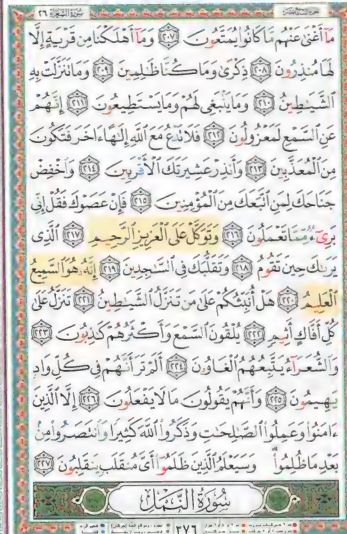 سُورَةُ الشُّعَرَاءِ ٢٦
مَآ أَغْنَىٰ عَنْهُم مَّا كَانُوا۟ يُمَتَّعُونَ ٢٠٧ وَمَآ أَهْلَكْنَا مِن قَرْيَةٍ إِلَّا
لَهَا مُنذِرُونَ ٢٠٨ ذِكْرَىٰ وَمَا كُنَّا ظَٰلِمِينَ ٢٠٩ وَمَا تَنَزَّلَتْ بِهِ
ٱلشَّيَٰطِينُ ٢١٠ وَمَا يَنۢبَغِى لَهُمْ وَمَا يَسْتَطِيعُونَ ٢١١ إِنَّهُمْ
عَنِ ٱلسَّمْعِ لَمَعْزُولُونَ ٢١٢ فَلَا تَدْعُ مَعَ ٱللَّهِ إِلَٰهًا ءَاخَرَ فَتَكُونَ
مِنَ ٱلْمُعَذَّبِينَ ٢١٣ وَأَنذِرْ عَشِيرَتَكَ ٱلْأَقْرَبِينَ ٢١٤ وَٱخْفِضْ
جَنَاحَكَ لِمَنِ ٱتَّبَعَكَ مِنَ ٱلْمُؤْمِنِينَ ٢١٥ فَإِنْ عَصَوْكَ فَقُلْ إِنِّى
بَرِىٓءٌ مِّمَّا تَعْمَلُونَ ٢١٦ وَتَوَكَّلْ عَلَى ٱلْعَزِيزِ ٱلرَّحِيمِ ٢١٧ ٱلَّذِى
يَرَىٰكَ حِينَ تَقُومُ ٢١٨ وَتَقَلُّبَكَ فِى ٱلسَّٰجِدِينَ ٢١٩ إِنَّهُۥ هُوَ ٱلسَّمِيعُ
ٱلْعَلِيمُ ٢٢٠ هَلْ أُنَبِّئُكُمْ عَلَىٰ مَن تَنَزَّلُ ٱلشَّيَٰطِينُ ٢٢١ تَنَزَّلُ عَلَىٰ
كُلِّ أَفَّاكٍ أَثِيمٍ ٢٢٢ يُلْقُونَ ٱلسَّمْعَ وَأَكْثَرُهُمْ كَٰذِبُونَ ٢٢٣
وَٱلشُّعَرَآءُ يَتَّبِعُهُمُ ٱلْغَاوُۥنَ ٢٢٤ أَلَمْ تَرَ أَنَّهُمْ فِى كُلِّ وَادٍ
يَهِيمُونَ ٢٢٥ وَأَنَّهُمْ يَقُولُونَ مَا لَا يَفْعَلُونَ ٢٢٦ إِلَّا ٱلَّذِينَ
ءَامَنُوا۟ وَعَمِلُوا۟ ٱلصَّٰلِحَٰتِ وَذَكَرُوا۟ ٱللَّهَ كَثِيرًا وَٱنتَصَرُوا۟ مِنۢ
بَعْدِ مَا ظُلِمُوا۟ وَسَيَعْلَمُ ٱلَّذِينَ ظَلَمُوٓا۟ أَىَّ مُنقَلَبٍ يَنقَلِبُونَ ٢٢٧
سُورَةُ النَّمْلِ
٣٧٦